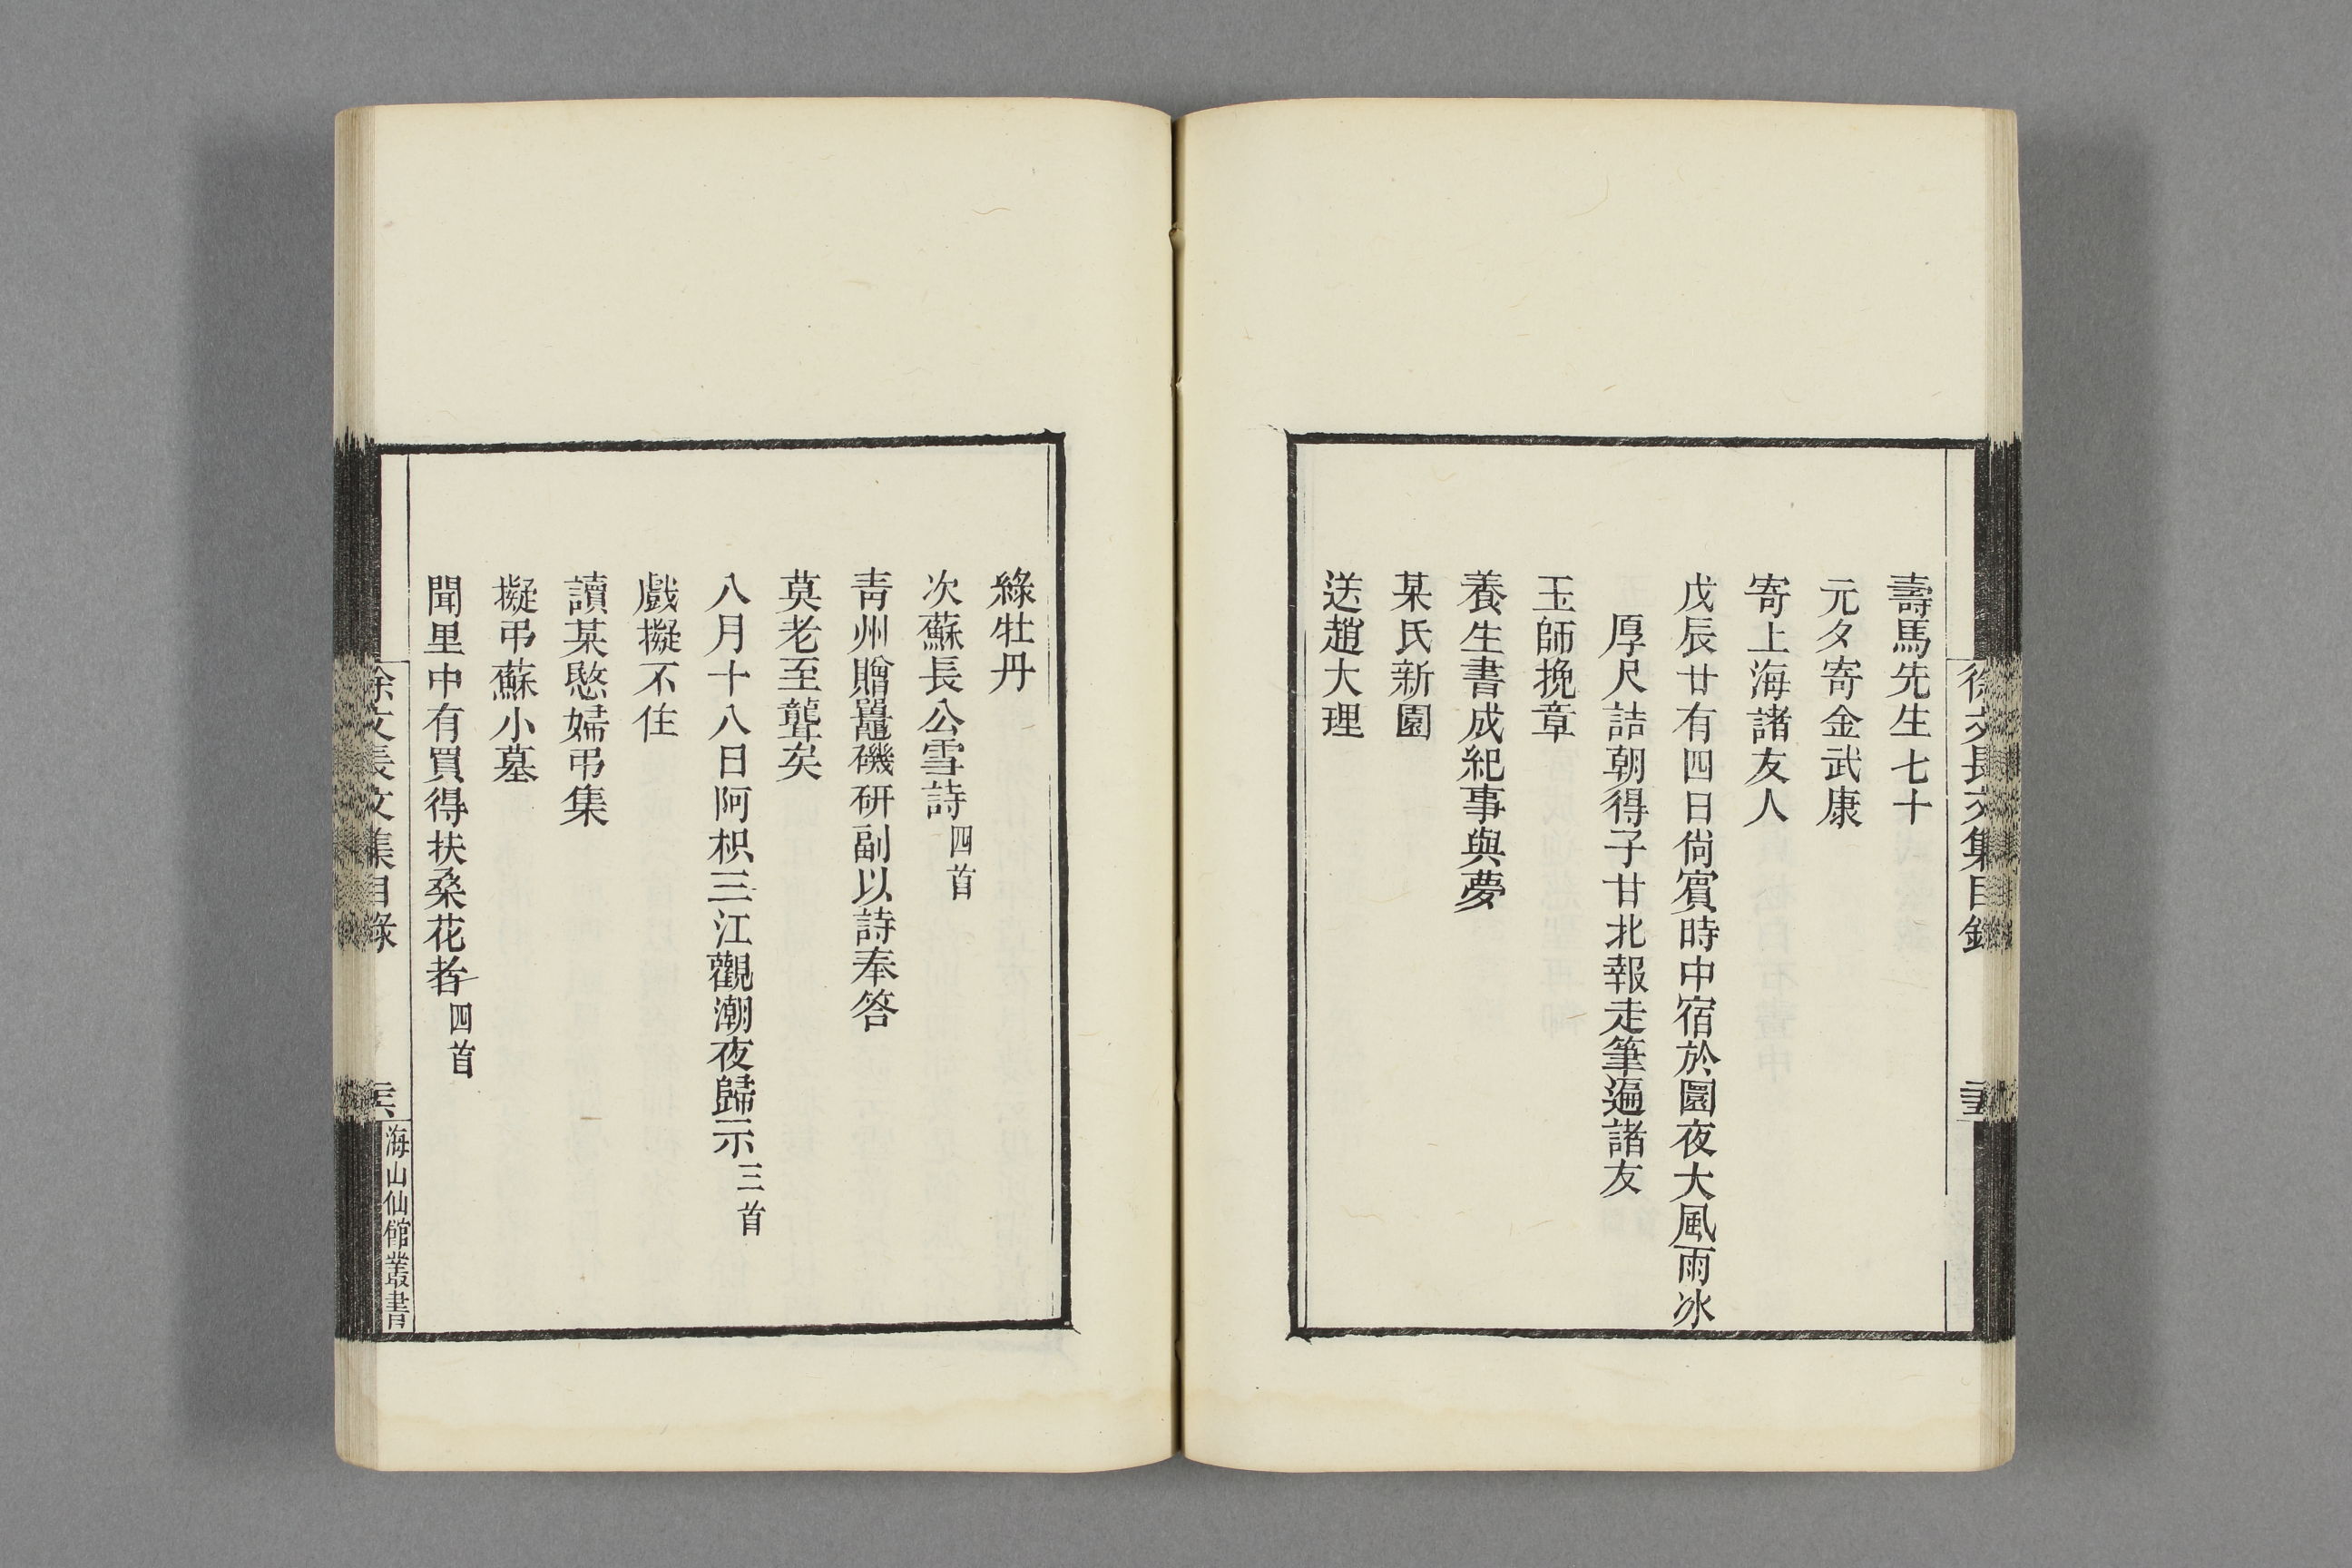 徐文長文集目錄
壽馬先生七十
元夕寄金武康
寄上海諸友人
戊辰廿有四日尙賓時中宿於園夜大風雨冰
厚尺詰朝得子甘北報走筆遍諸友
玉師挽章
養生書成紀事與夢
某氏新園
送趙大理
綠牡丹
次蘇長公雪詩四首
靑州贈鼉磯研副以詩奉答
莫老至聾矣
八月十八日阿枳三江觀潮夜歸示三首
戲擬不住
讀某愍婦弔集
擬弔蘇小墓
聞里中有買得扶桑花者四首
徐文長文集目錄
海山仙館叢書